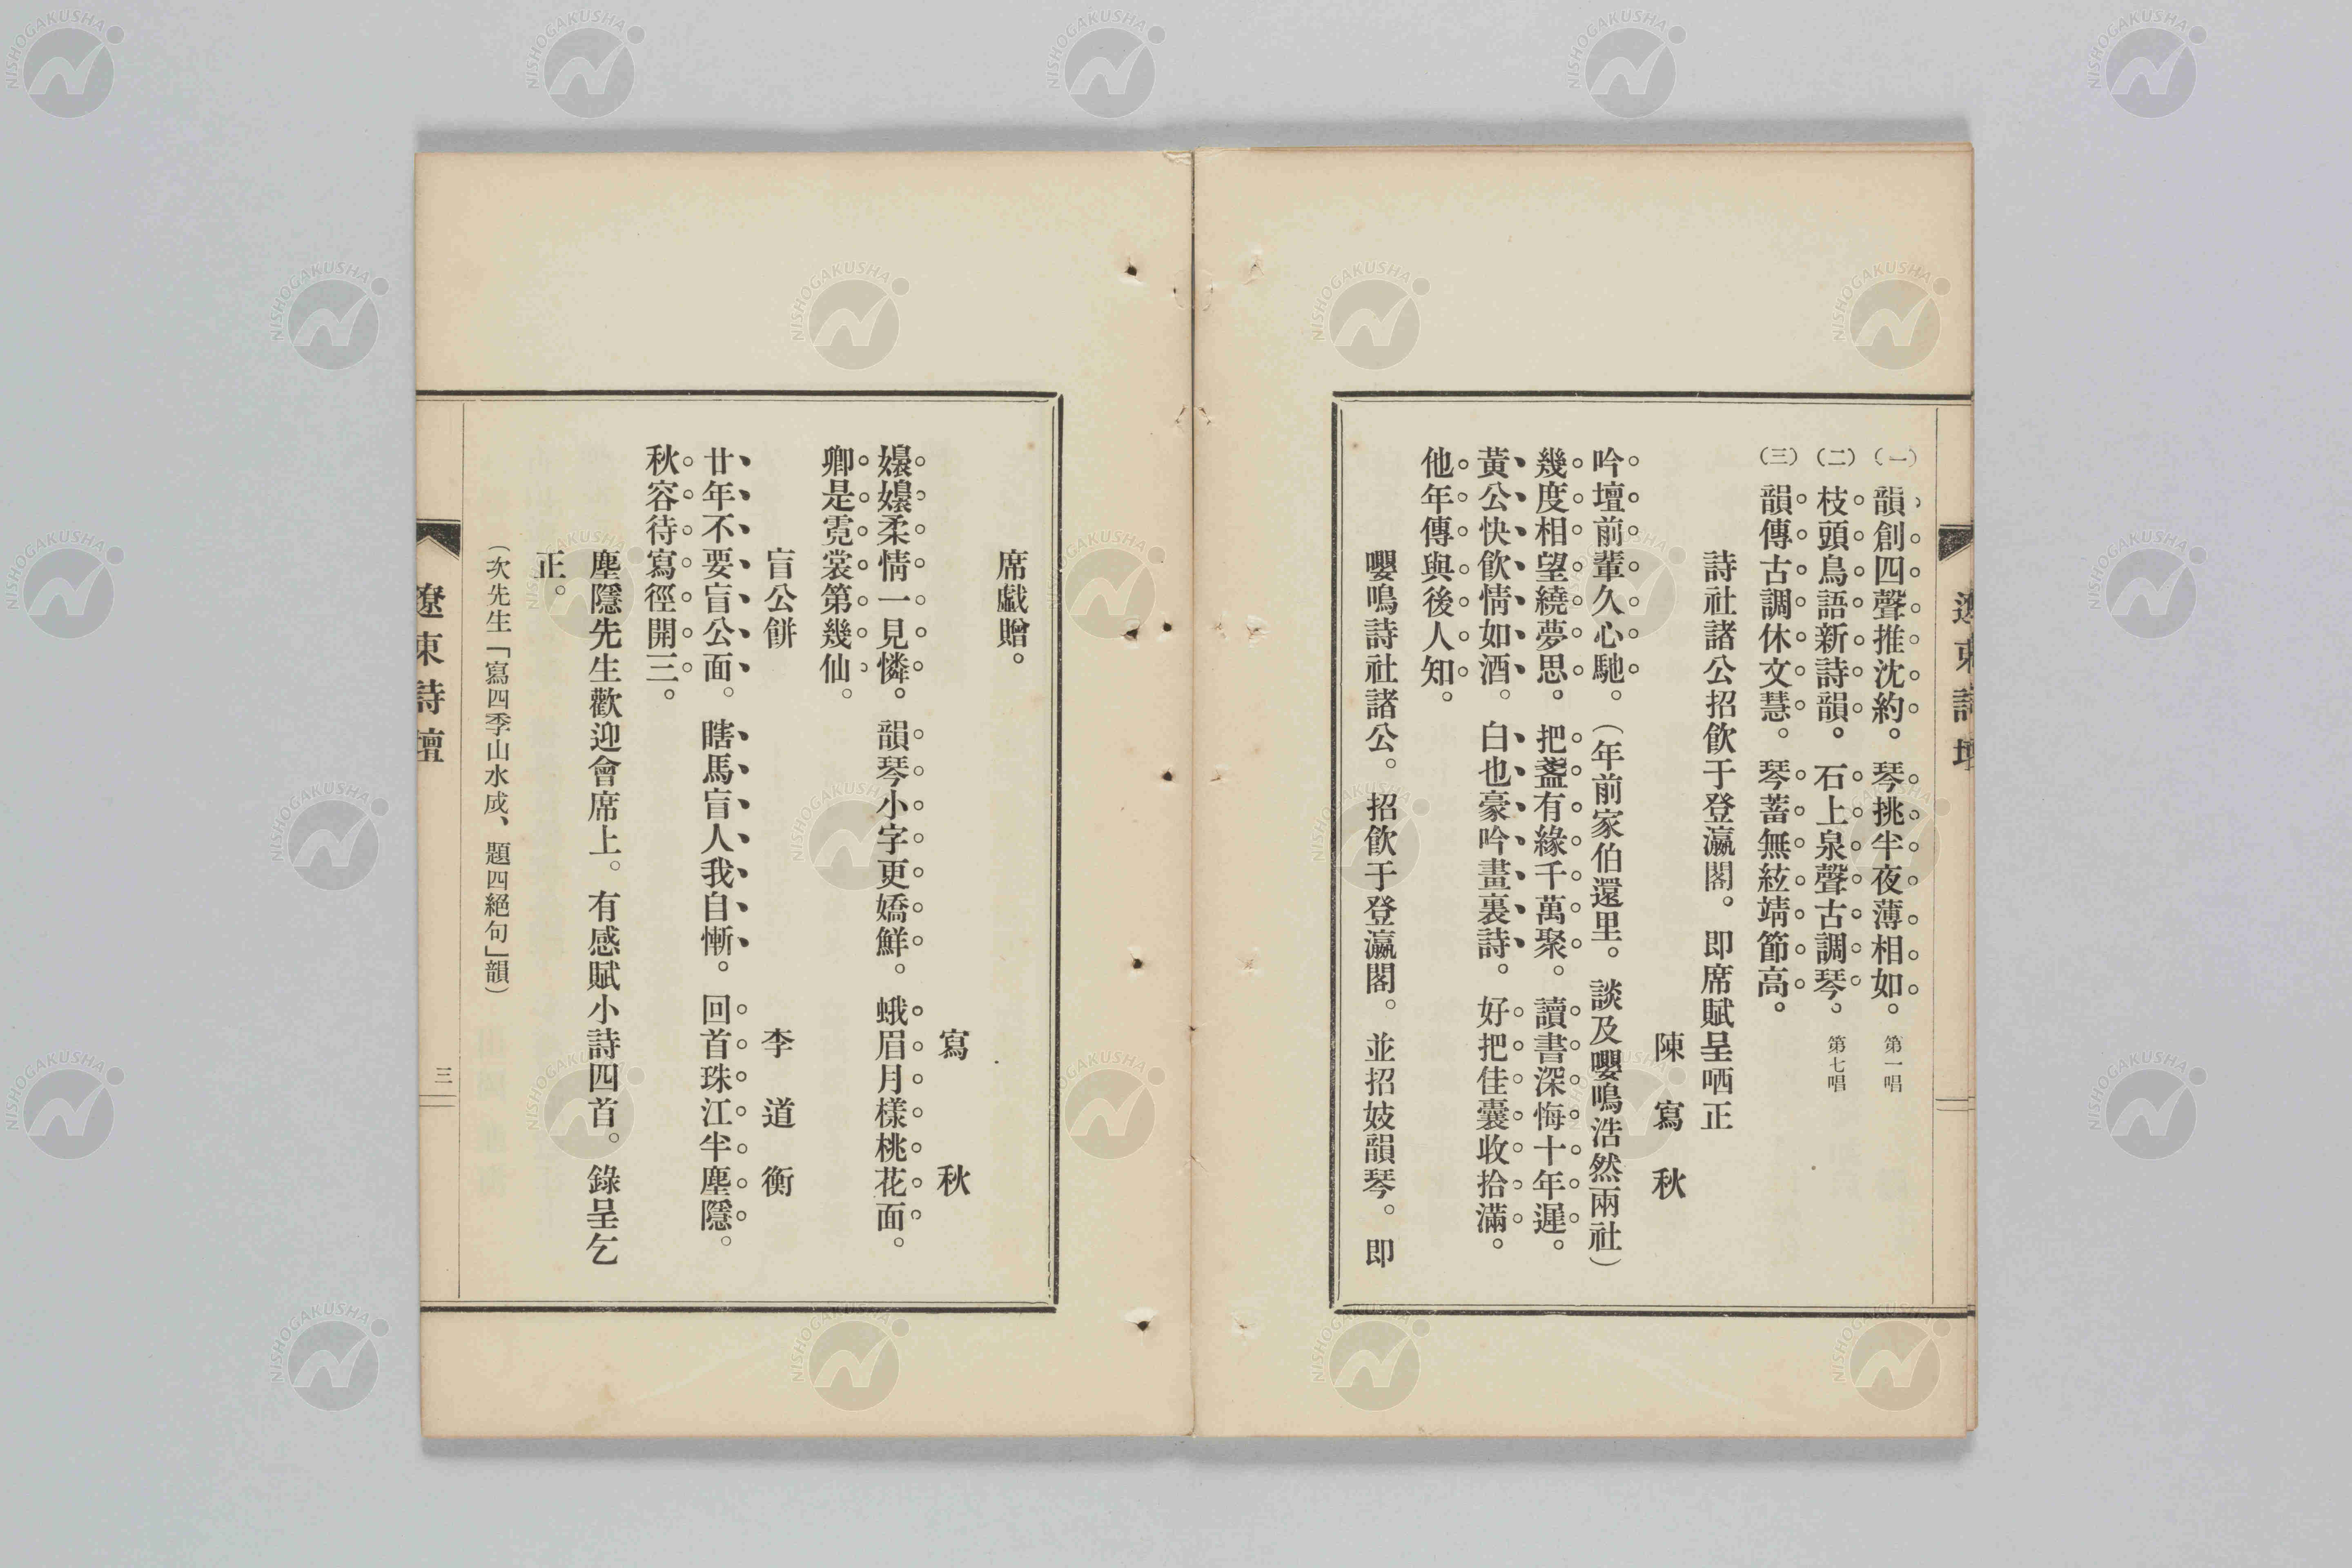 遼東詩壇
(一) 韻創四聲推沈約。琴挑半夜薄相如。 第一唱
(二) 枝頭鳥語新詩韻。石上泉聲古調琴。 第七唱
(三) 韻傳古調休文慧。琴蓄無絃靖節高。
詩社諸公招飲于登瀛閣。即席賦呈哂正
陳寫秋
吟壇前輩久心馳。(年前家伯還里。談及嚶鳴浩然兩社)
幾度相望繞夢思。把盞有緣千萬聚。讀書深悔十年遲。
黃公快飲情如酒。白也豪吟畫裏詩。好把佳囊收拾滿。
他年傳與後人知。
嚶鳴詩社諸公。招飲于登瀛閣。並招妓韻琴。即
席戱贈。
寫秋
嬝嬝柔情一見憐。韻琴小字更嬌鮮。蛾眉月樣桃花面。
卿是霓裳第幾仙。
盲公餅
李道衡
廿年不要盲公面。瞎馬盲人我自慚。回首珠江半塵隱。
秋容待寫徑開三。
塵隱先生歡迎會席上。有感賦小詩四首。錄呈乞
正。
(次先生「寫四季山水成、題四絕句」韻)
遼東詩壇
三
NISHOGAKUSHA